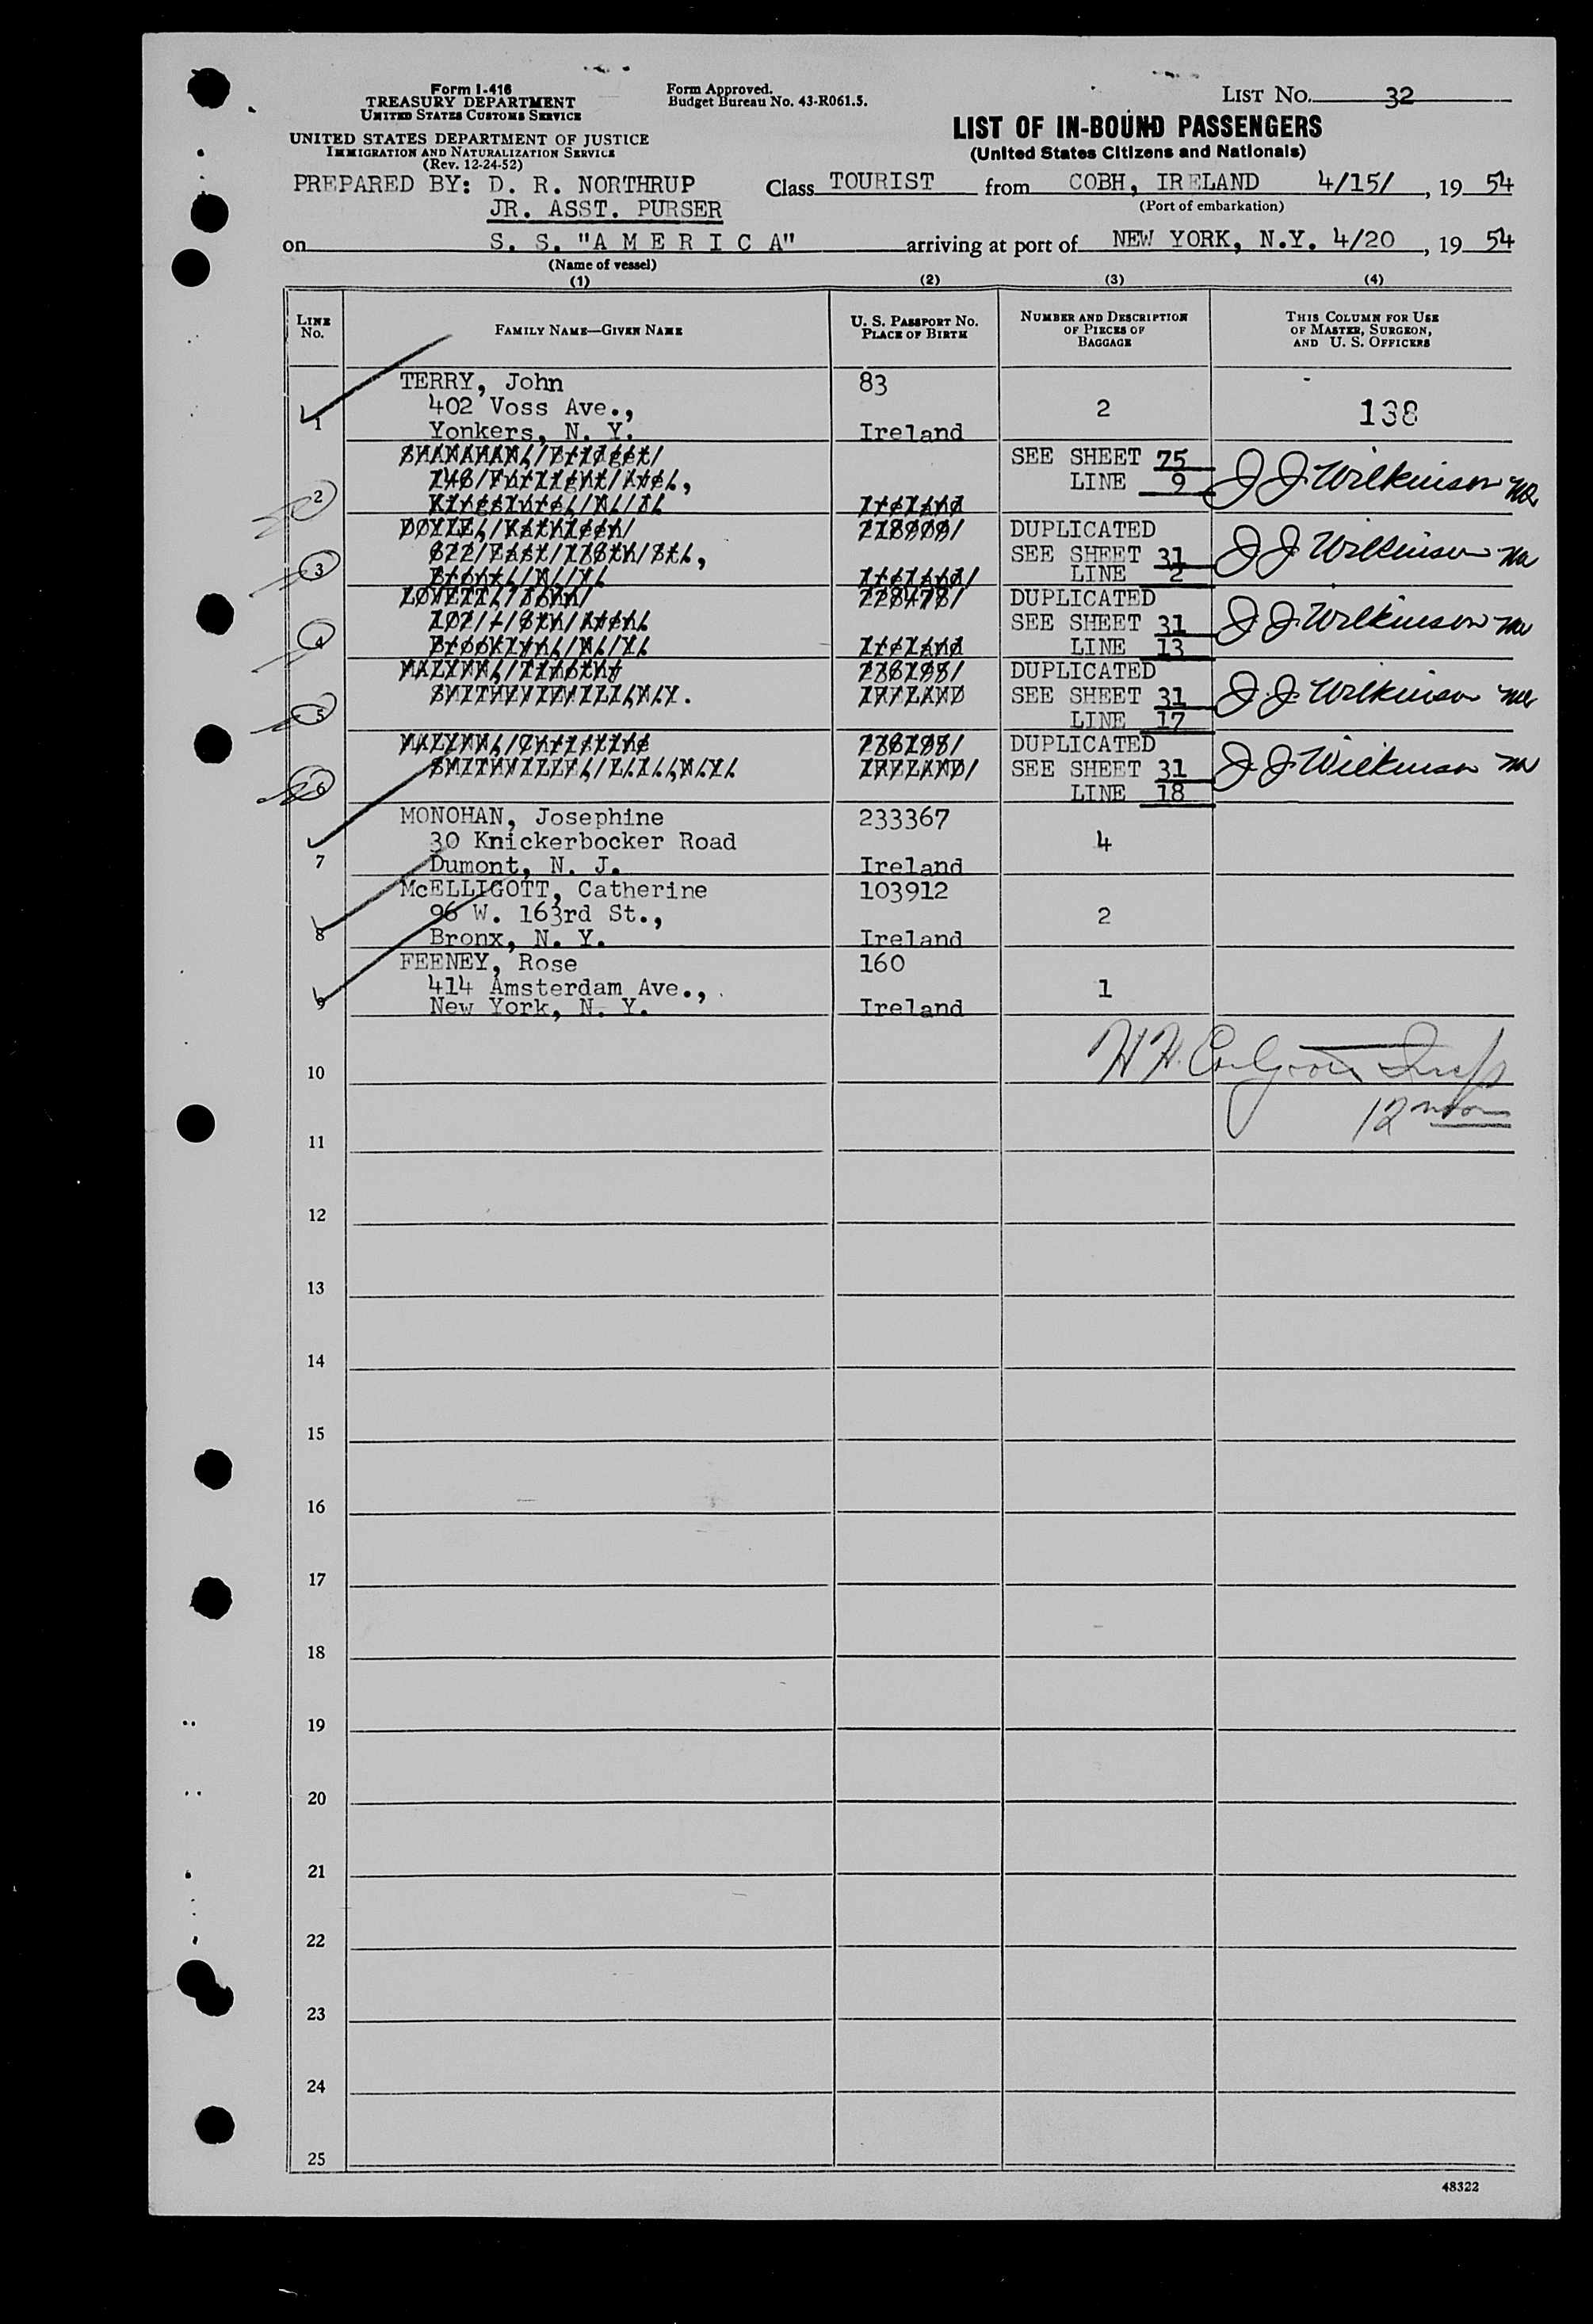 Form I-416
TREASURY DEPARTMENT
UNITED STATES CUSTOMS SERVICE
UNITED STATES DEPARTMENT OF JUSTICE
IMMIGRATION AND NATURALIZATION SERVICE
(Rev. 12-24-52)
Form Approved.
Budget Bureau No. 43-R061.5.
LIST NO. 32
LIST OF IN-BOUND PASSENGERS
(United States Citizens and Nationals)
PREPARED BY: D. R. NORTHRUP
JR. ASST. PURSER
Class TOURIST from COBH, IRELAND 4/15/, 19 54
(Port of embarkation)
on S. S. "A M E R I C A" arriving at port of NEW YORK, N.Y. 4/20, 19 54
(Name of vessel)
(1) (2) (3) (4)
LINE No.
FAMILY NAME—GIVEN NAME
U. S. PASSPORT NO.
PLACE OF BIRTH
NUMBER AND DESCRIPTION
OF PIECES OF
BAGGAGE
THIS COLUMN FOR USE
OF MASTER, SURGEON,
AND U. S. OFFICERS
TERRY, John 83
402 Voss Ave., 2 138
1 Yonkers, N. Y. Ireland
SHANAHAN, Bridget SEE SHEET 75
LINE 9 J J Wilkinson
2 Ireland
DOYLE, Kathleen DUPLICATED
SEE SHEET 31 J J Wilkinson
3 Bronx, N. Y. Ireland LINE 2
LOVETT, John DUPLICATED
SEE SHEET 31 J J Wilkinson
4 Brooklyn, N. Y. Ireland LINE 13
Timothy DUPLICATED
IRELAND SEE SHEET 31 J J Wilkinson
5 LINE 17
Christine DUPLICATED
SMITHVILLE, L.I., N.Y. IRELAND SEE SHEET 31 J J Wilkinson
6 LINE 18
MONOHAN, Josephine 233367
30 Knickerbocker Road 4
7 Dumont, N. J. Ireland
McELLIGOTT, Catherine 103912
96 W. 163rd St., 2
8 Bronx, N. Y. Ireland
FEENEY, Rose 160
414 Amsterdam Ave., 1
9 New York, N. Y. Ireland
10
12 noon
11
12
13
14
15
16
17
18
19
20
21
22
23
24
25
48322